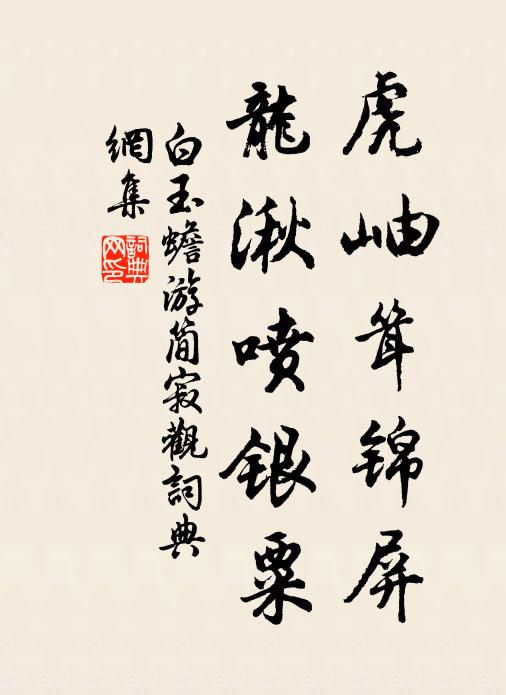 虎岫耸锦屏
龍湫喷银粟
白玉蟾游简寂觀詞典
網集
詞典網印